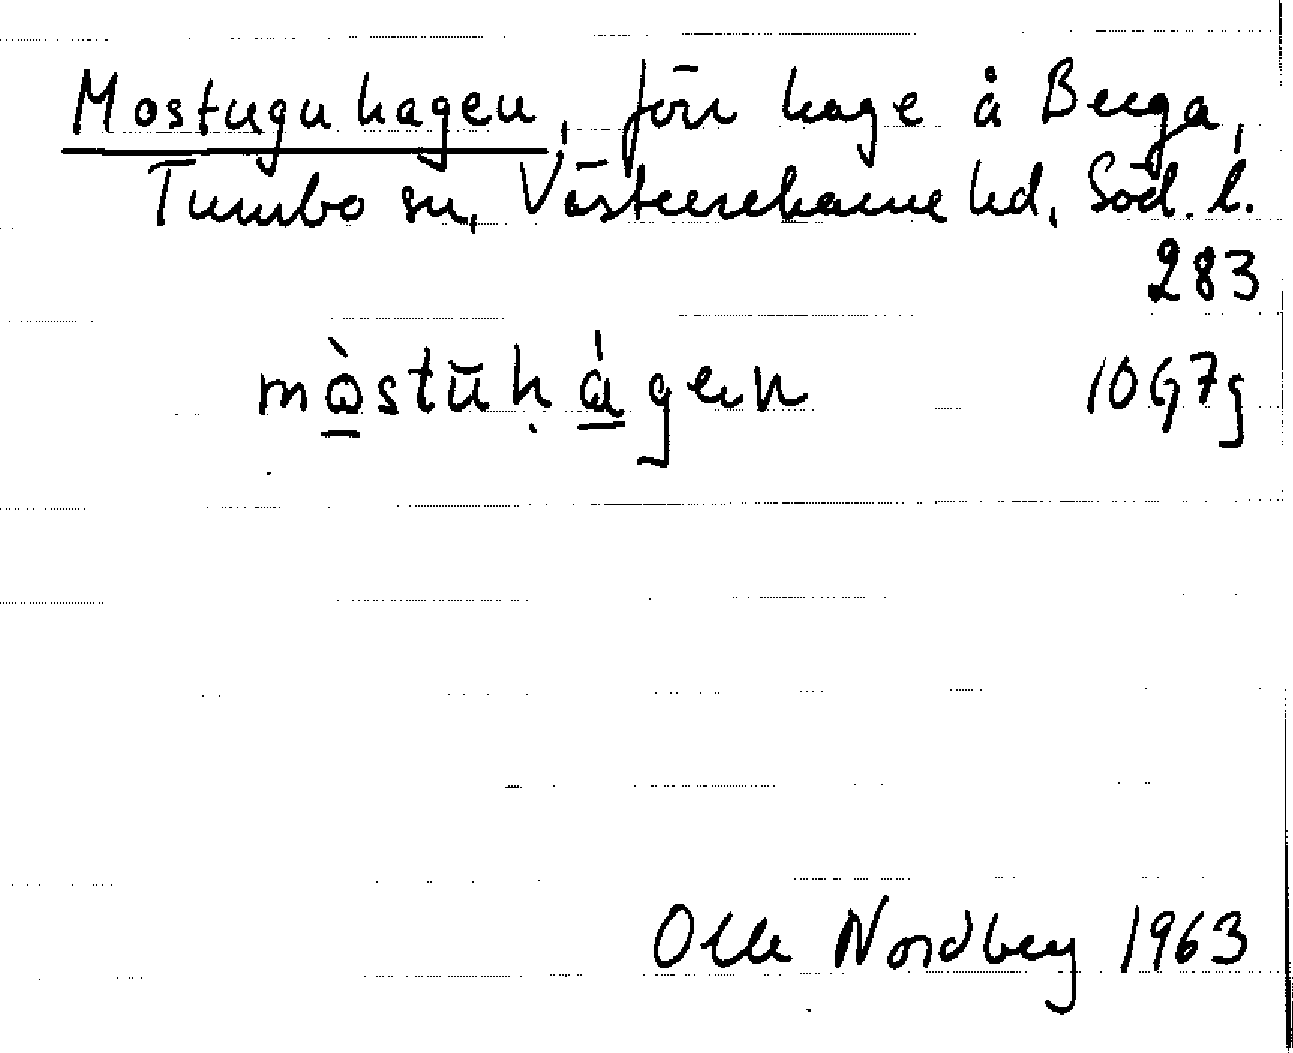 Mostuguhagen, förr hage å Berga,
Tumbo sn, Västerrekarne hd, Söd. l.
283
mo̱̊̀stūḥa̱̍gen 10G7g
Olle Nordberg 1963